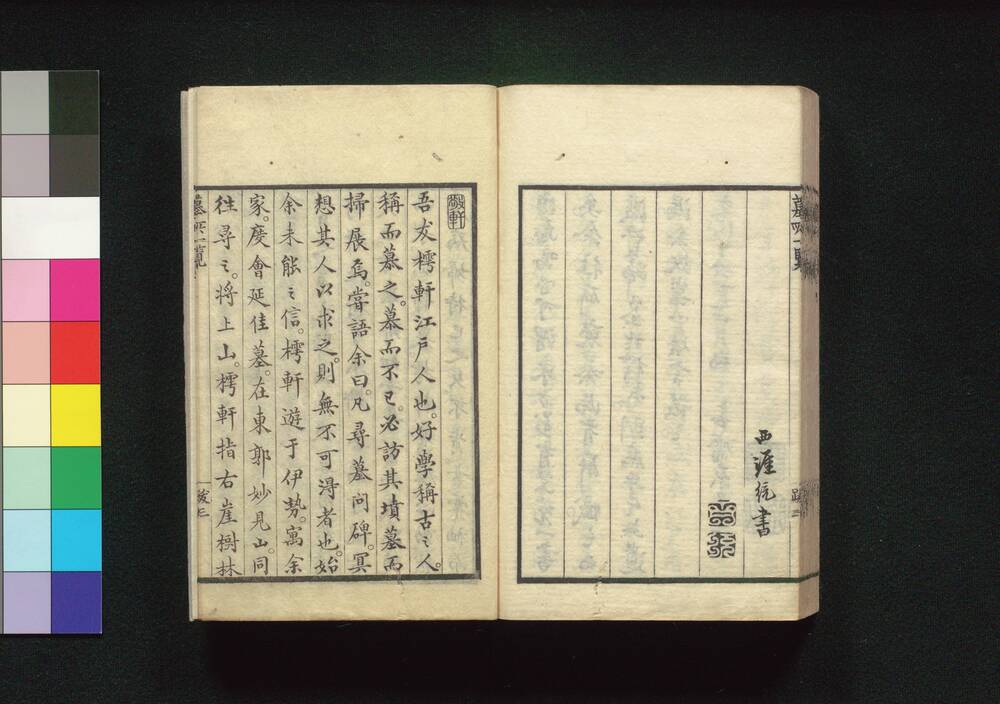 墓所一覧
西涯 書
吾友樗軒江戸人也。好學稱古之人。
稱而慕之。慕而不已。必訪其墳墓而
掃展焉。嘗語余曰。凡尋墓問碑。冥
想其人以求之。則無不可得者也。始
余未能之信。樗軒遊于伊勢。寓余
家。度會延佳墓。在東郭妙見山。同
往尋之。將上山。樗軒指右崖樹林
墓所一覧